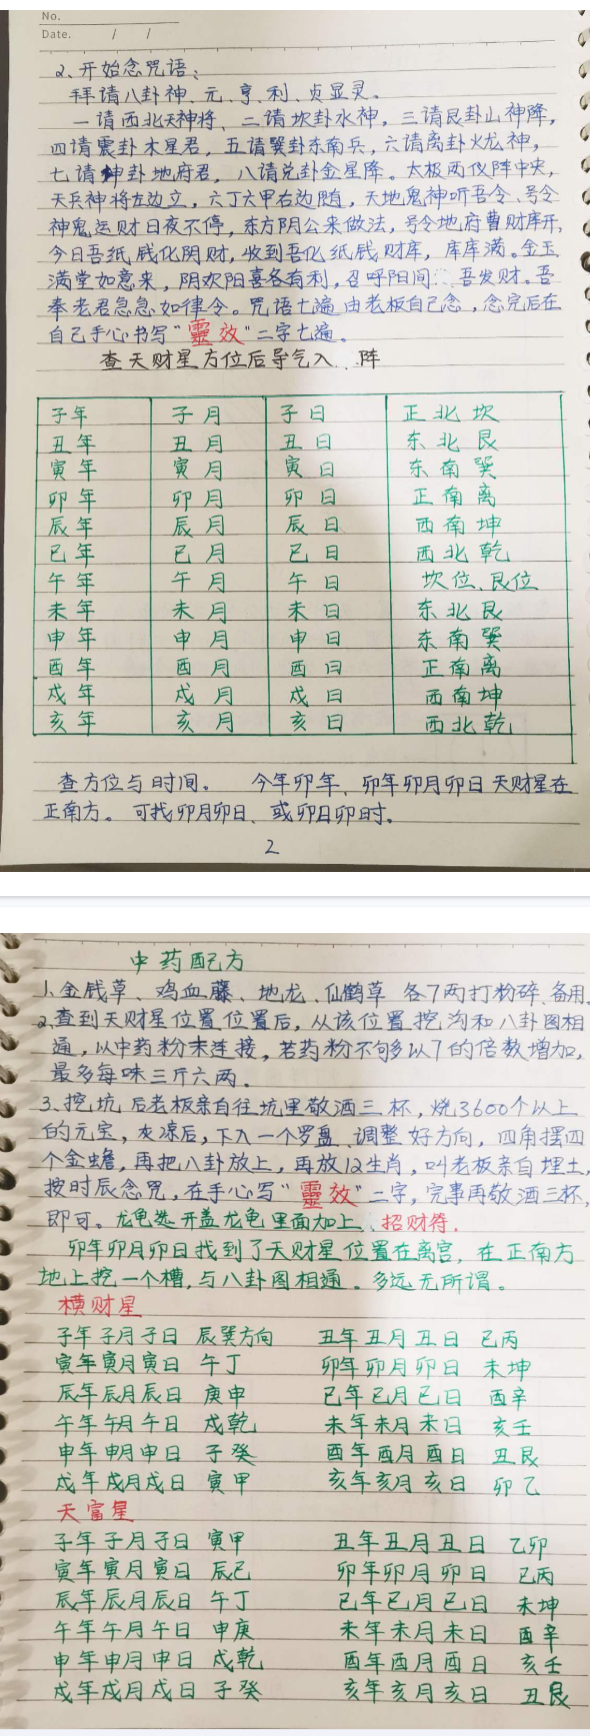 No.
Date.  /  /
2、开始念咒语：
拜请八卦神、元、亨、利、贞显灵。
一请西北天神将、二请坎卦水神，三请艮卦山神降，
四请震卦木星君，五请巽卦东南兵，六请离卦火龙神，
七请坤卦地府君，八请兑卦金星降。太极两仪阵中央，
天兵神将左边立，六丁六甲右边随，天地鬼神听吾令、号令
神鬼运财日夜不停，东方阴公来做法，号令地府曹财库开，
今日吾纸钱化阴财，收到吾化纸钱财库，库库满。金玉
满堂如意来，阴欢阳喜各有利，召呼阳间 吾发财。吾
奉老君急急如律令。咒语七遍由老板自己念，念完后在
自己手心书写"靈效"二字七遍。
查天财星方位后导气入 阵
子年 子月 子日 正北坎
丑年 丑月 丑日 东北艮
寅年 寅月 寅日 东南巽
卯年 卯月 卯日 正南离
辰年 辰月 辰日 西南坤
巳年 巳月 巳日 西北乾
午年 午月 午日 坎位、艮位
未年 未月 未日 东北艮
申年 申月 申日 东南巽
酉年 酉月 酉日 正南离
戌年 戌月 戌日 西南坤
亥年 亥月 亥日 西北乾
查方位与时间。 今年卯年、卯年卯月卯日天财星在
正南方。可找卯月卯日、或卯日卯时。
2
中药配方
1、金钱草、鸡血藤、地龙、仙鹤草 各7两打粉碎、备用。
2、查到天财星位置位置后，从该位置挖沟和八卦图相
通，以中药粉末连接，若药粉不够多以7的倍数增加，
最多每味三斤六两。
3、挖坑后老板亲自往坑里敬酒三杯，烧3600个以上
的元宝，灰凉后，下入一个罗盘、调整好方向，四角摆四
个金蟾，再把八卦放上，再放12生肖，叫老板亲自埋土，
按时辰念咒，在手心写"靈效"二字，完事再敬酒三杯，
即可。龙龟选开盖龙龟里面加上、招财符．
卯年卯月卯日找到了天财星位置在离宫，在正南方
地上挖一个槽，与八卦图相通。多远无所谓。
横财星
子年子月子日 辰巽方向 丑年丑月丑日 巳丙
寅年寅月寅日 午丁 卯年卯月卯日 未坤
辰年辰月辰日 庚申 巳年巳月巳日 酉辛
午年午月午日 戌乾 未年未月未日 亥壬
申年申月申日 子癸 酉年酉月酉日 丑艮
戌年戌月戌日 寅甲 亥年亥月亥日 卯乙
天富星
子年子月子日 寅甲 丑年丑月丑日 乙卯
寅年寅月寅日 辰巳 卯年卯月卯日 巳丙
辰年辰月辰日 午丁 巳年巳月巳日 未坤
午年午月午日 申庚 未年未月未日 酉辛
申年申月申日 戌乾 酉年酉月酉日 亥壬
戌年戌月戌日 子癸 亥年亥月亥日 丑艮